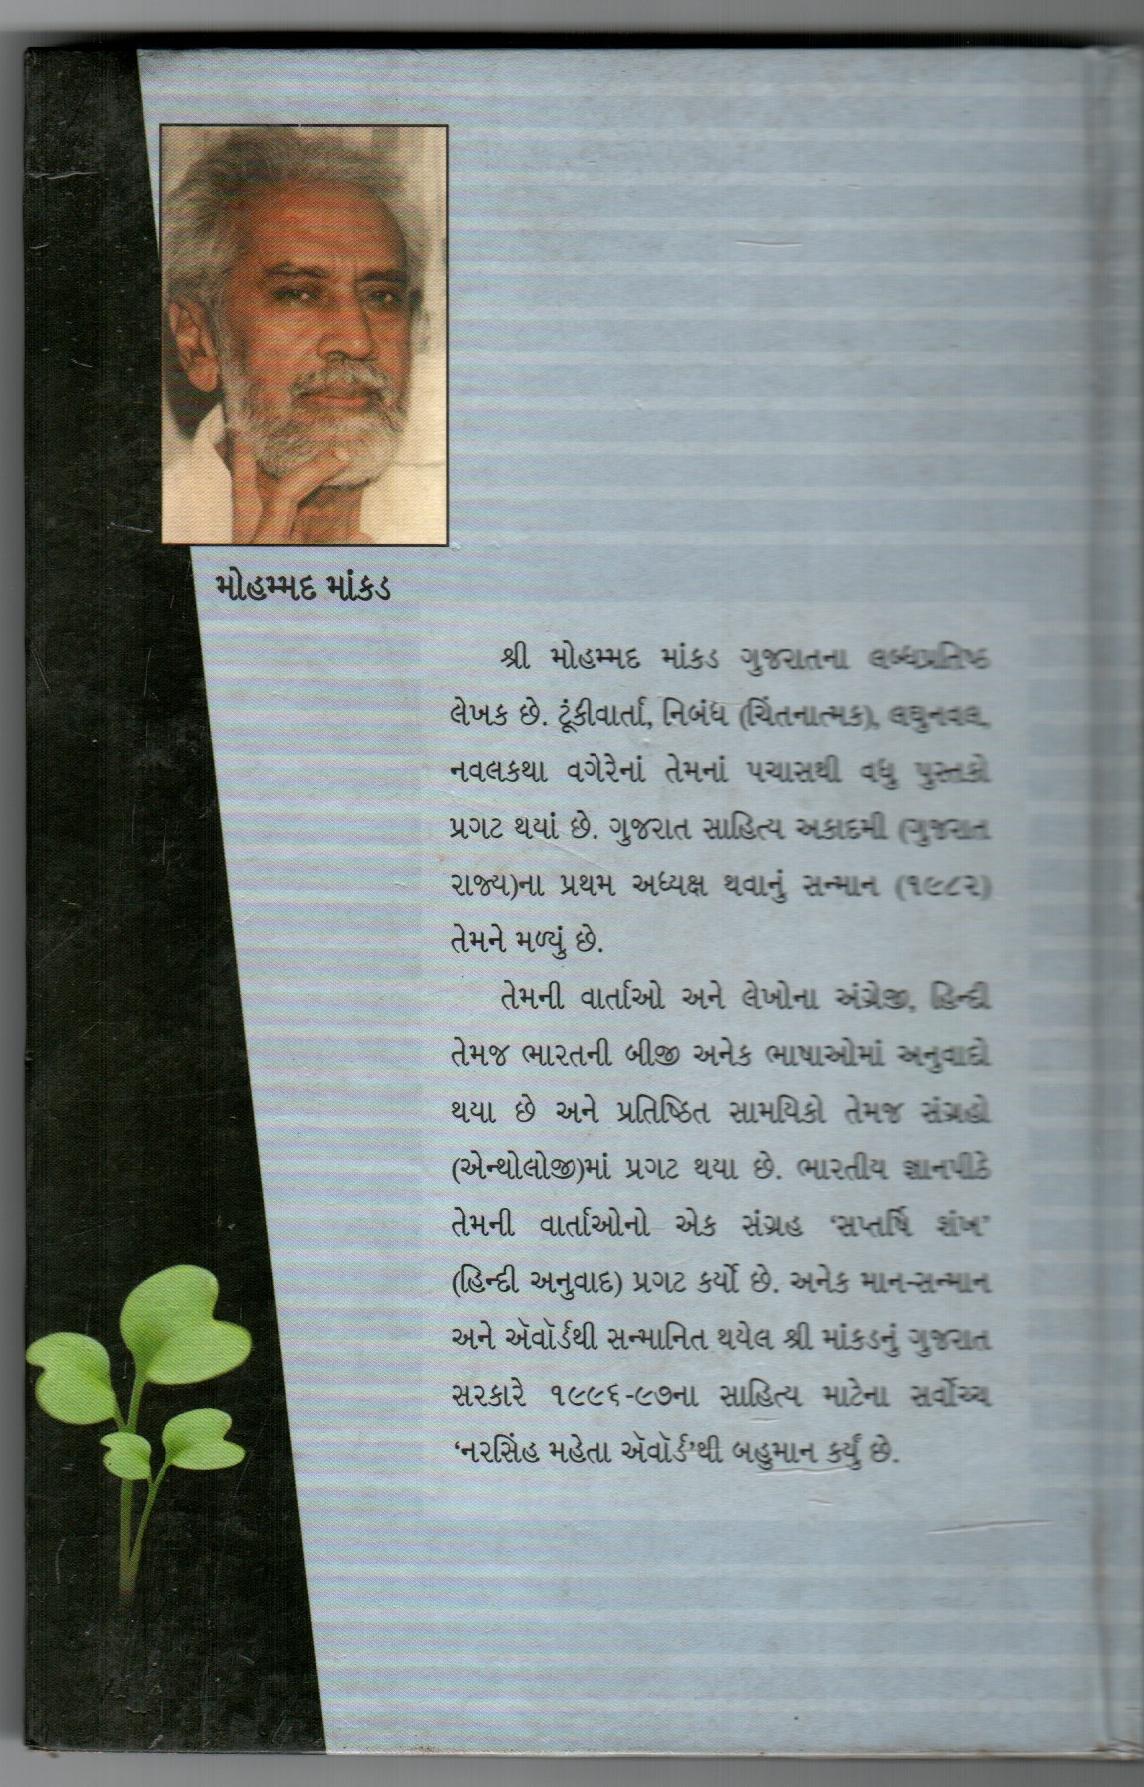 મોહમ્મદ માંકડ
શ્રી મોહમ્મદ માંકડ ગુજરાતના લબ્ધપ્રતિષ્ઠ
લેખક છે. ટૂંકીવાર્તા, નિબંધ (ચિંતનાત્મક), લઘુનવલ,
નવલકથા વગેરેનાં તેમનાં પચાસથી વધુ પુસ્તકો
પ્રગટ થયાં છે. ગુજરાત સાહિત્ય અકાદમી (ગુજરાત
રાજ્ય)ના પ્રથમ અધ્યક્ષ થવાનું સન્માન (૧૯૮૨)
તેમને મળ્યું છે.
તેમની વાર્તાઓ અને લેખોના અંગ્રેજી, હિન્દી
તેમજ ભારતની બીજી અનેક ભાષાઓમાં અનુવાદો
થયા છે અને પ્રતિષ્ઠિત સામયિકો તેમજ સંગ્રહો
(એન્થોલોજી)માં પ્રગટ થયા છે. ભારતીય જ્ઞાનપીઠે
તેમની વાર્તાઓનો એક સંગ્રહ ‘સપ્તર્ષિ શંખ’
(હિન્દી અનુવાદ) પ્રગટ કર્યો છે. અનેક માન-સન્માન
અને ઍવૉર્ડથી સન્માનિત થયેલ શ્રી માંકડનું ગુજરાત
સરકારે ૧૯૯૬-૯૭ના સાહિત્ય માટેના સર્વોચ્ચ
‘નરસિંહ મહેતા ઍવૉર્ડ’થી બહુમાન કર્યું છે.